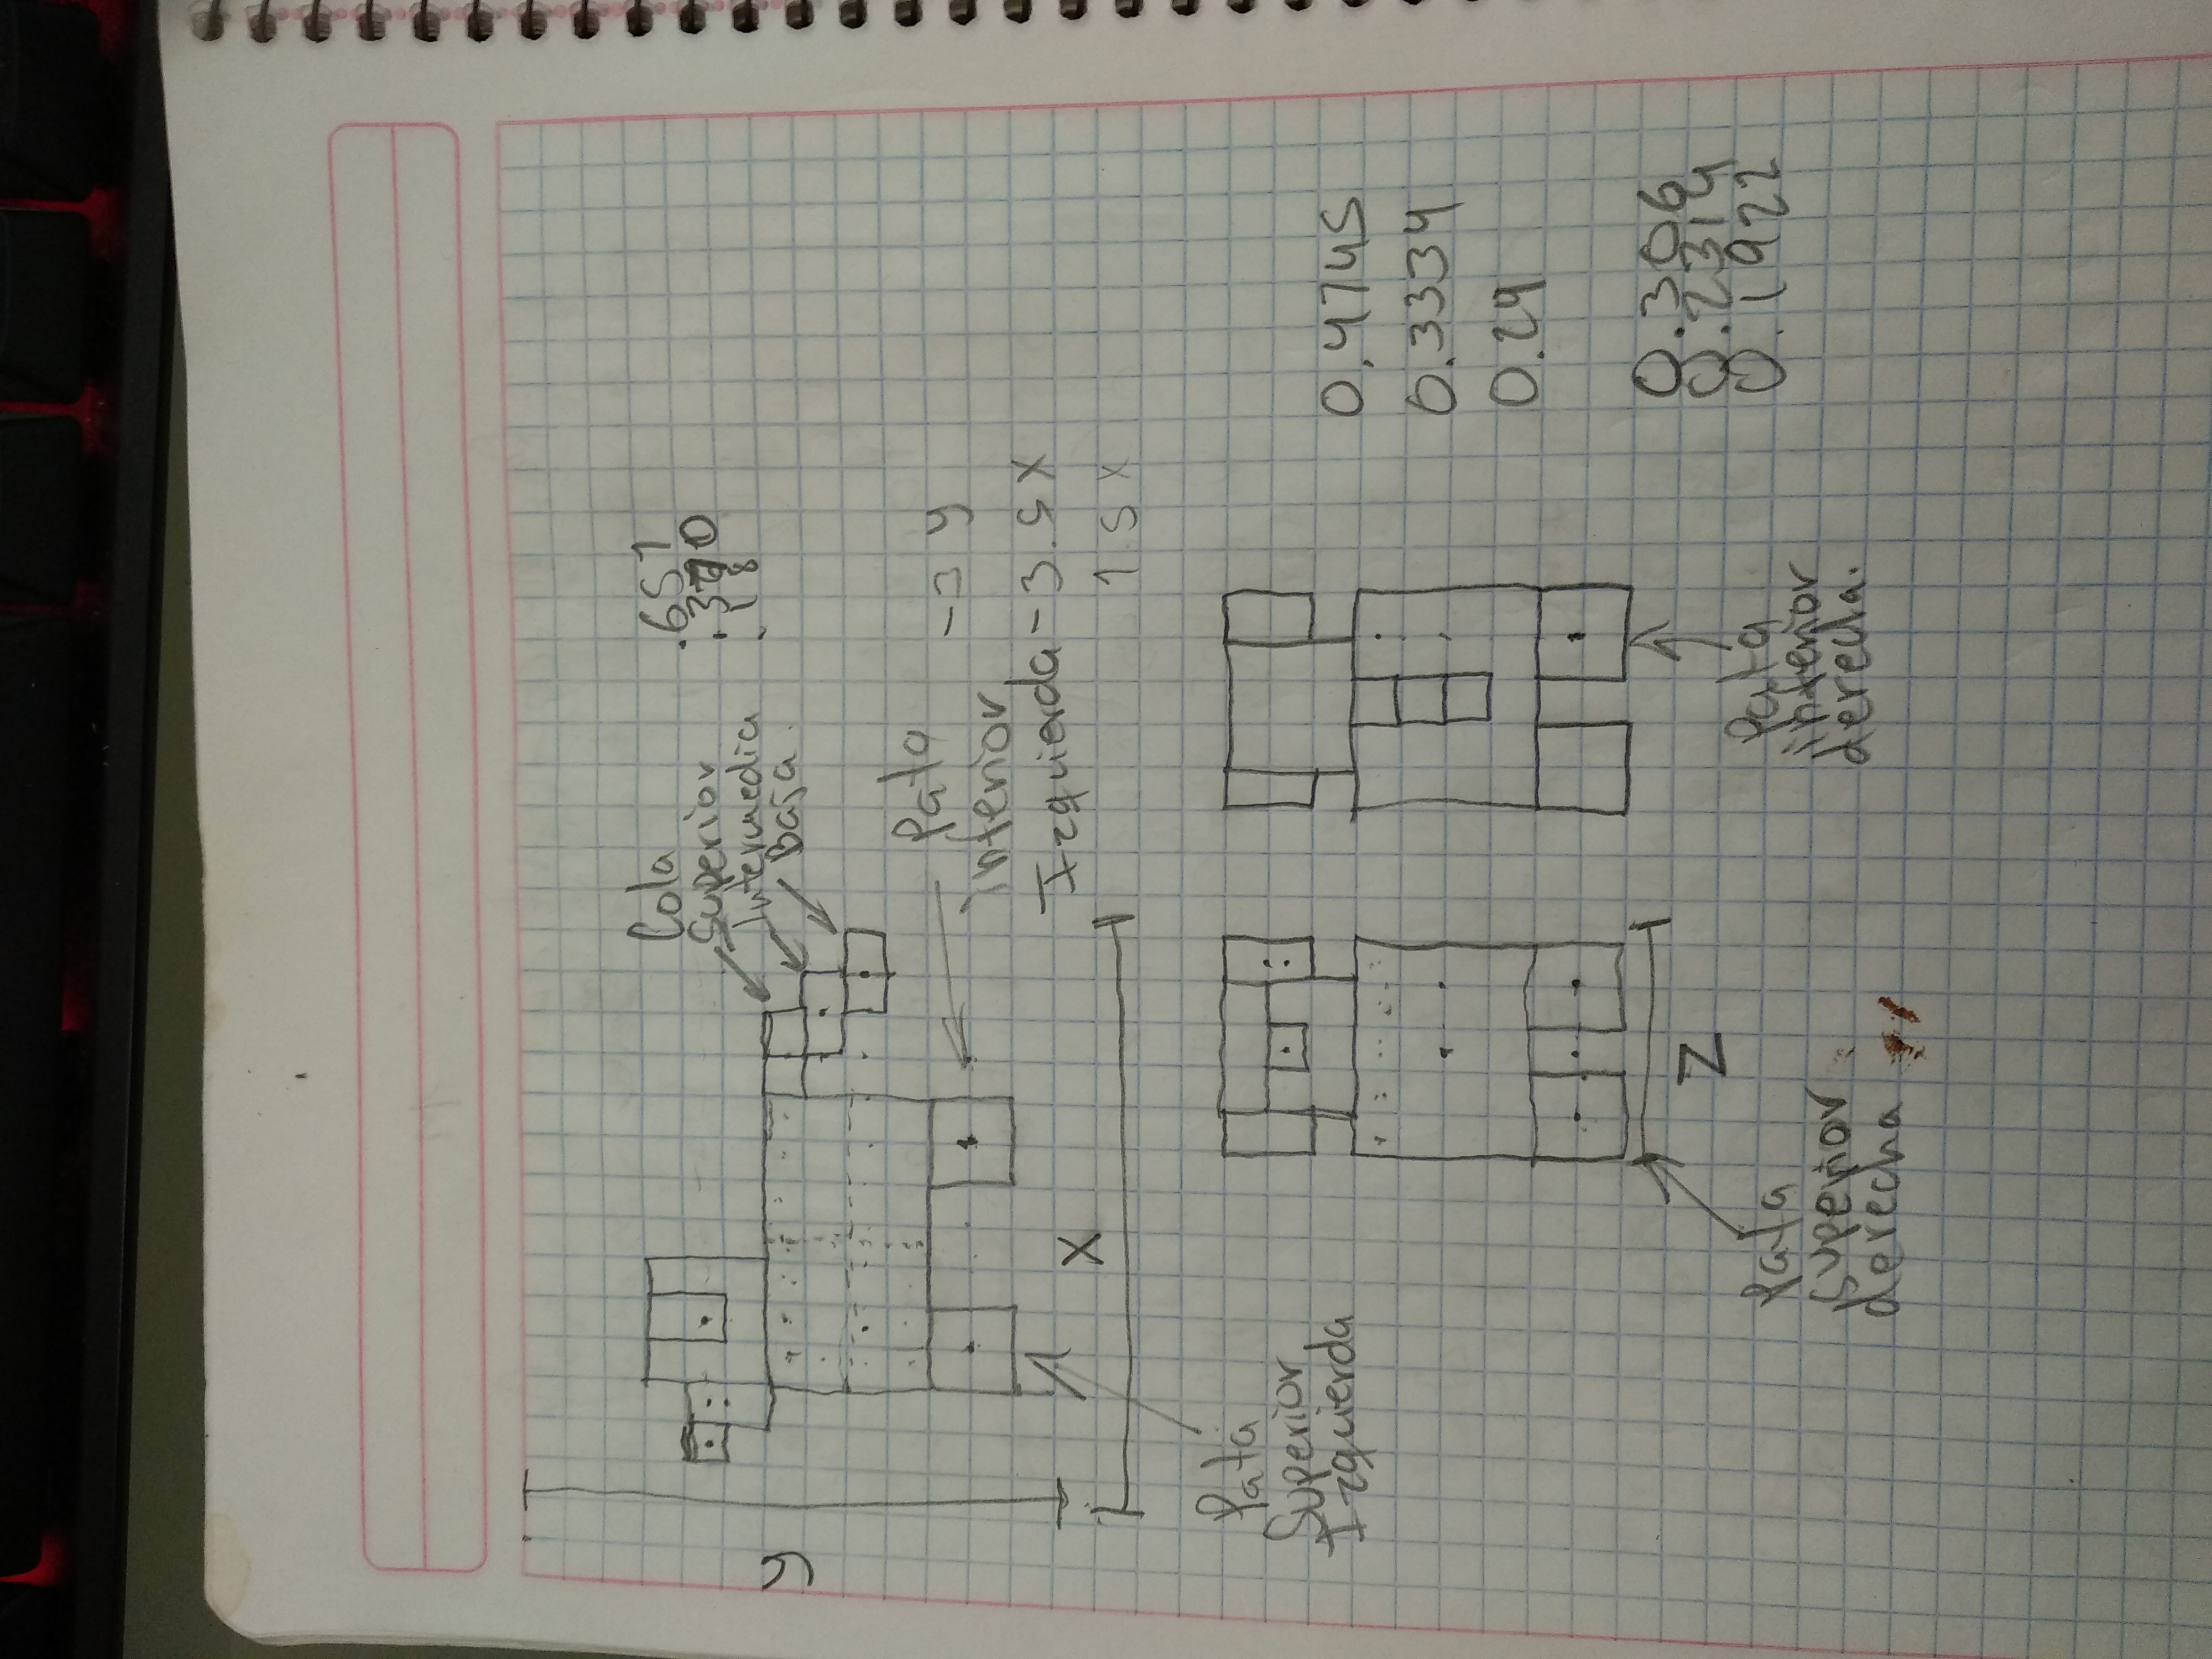 Cola
Superior
Intermedia
Baja
.651
.18
y
Pata
inferior
Izquierda
-3 y
-3.5 x
1.5 x
x
Pata
Superior
Izquierda
0.4745
0.3334
0.29
z
0.306
0.2314
0.1922
Pata
superior
derecha
Pata
inferior
derecha.